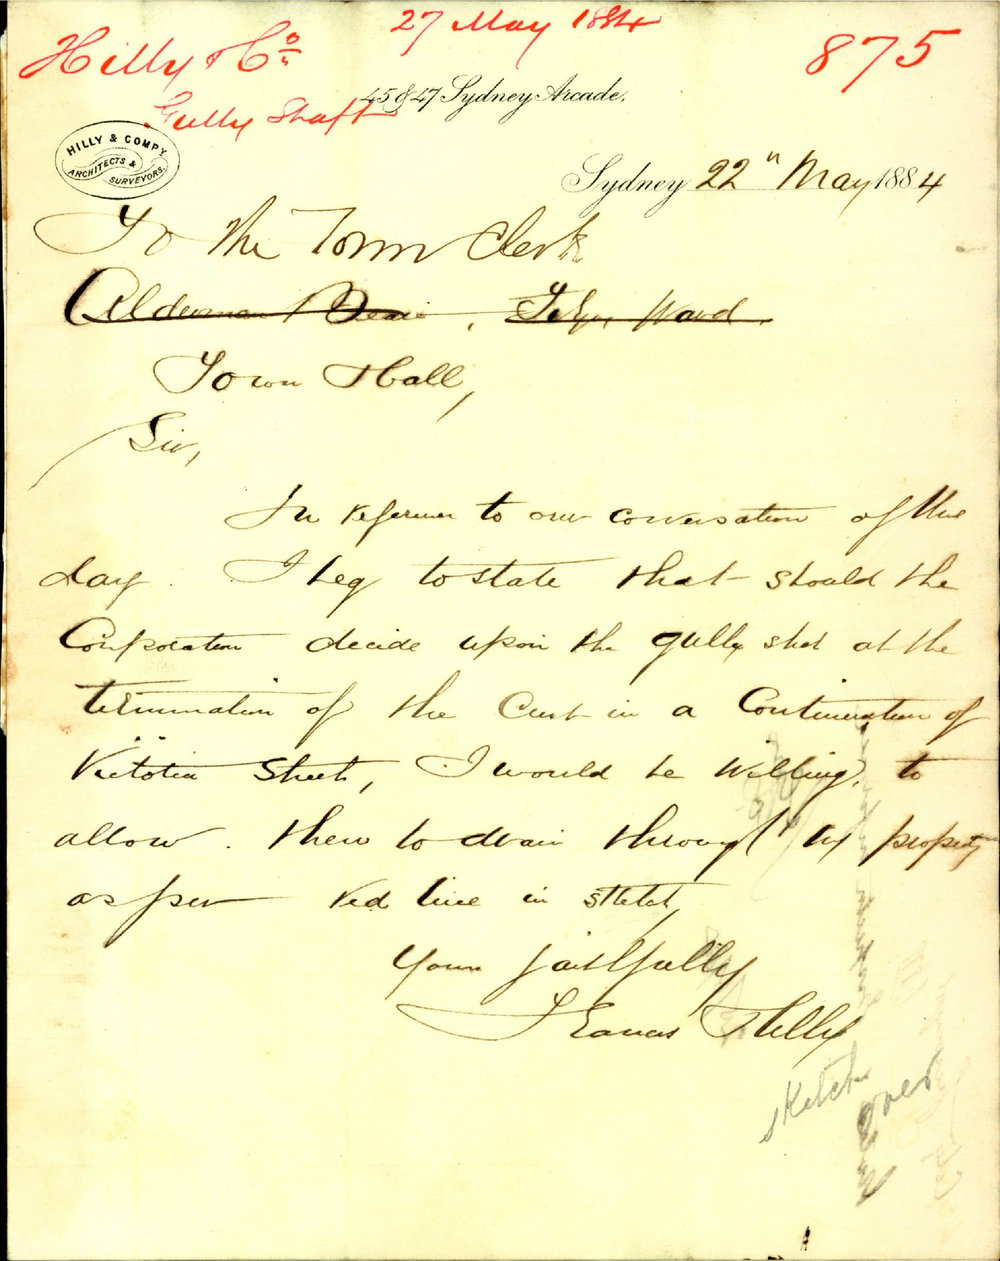 27 May 1884
Hilly & Co
875
45 & 47 Sydney Arcade,
Gully Shaft
HILLY & COMPY
ARCHITECTS &
SURVEYORS.
Sydney 22" May 1884
To The Town Clerk
Alderman Ward.
Town Hall,
Sir,
In reference to our conversation of this
day. I beg to state that should the
Corporation decide upon the gully at the
termination of the in a Continuation of
Victoria Street, I would be Willing, to
allow. them to drain through my property
as per red line in sketch
Yours faithfully
Hilly
sketch
over